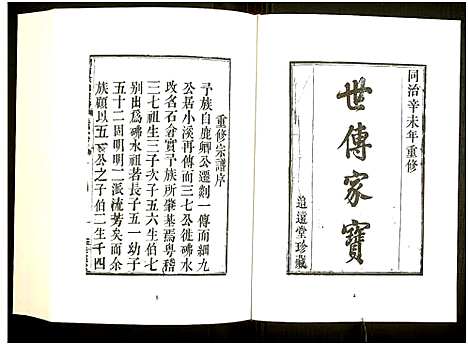 同治辛未年重修
世傳家寶
追遠堂珍藏
重修宗譜序
予族自鹿卿公遷剡一傳而細九
公居小溪再傳而三七公徙磗水
改名石倉實予族所肇基焉粤稽
三七祖生三子次子五六生伯七
別由是為磗水祖若長子五一幼子
五十二固明明二派流芳矣而余
族顧以五一公之子伯二生千四